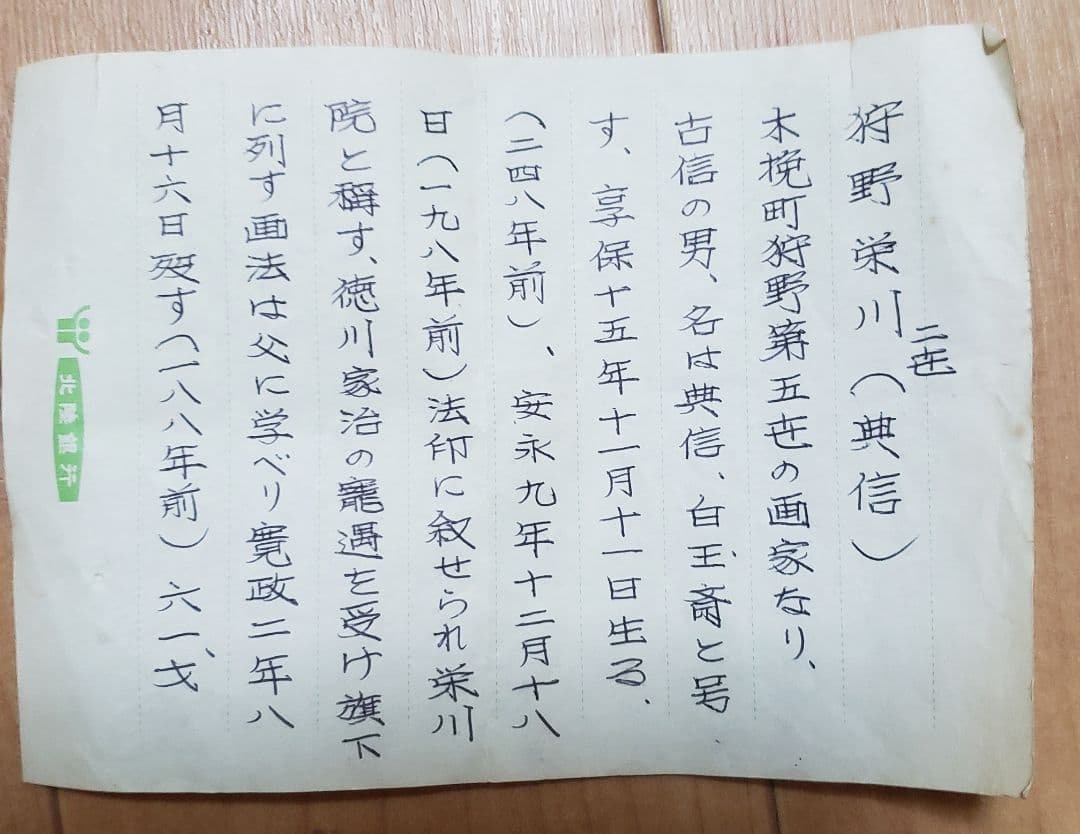 狩野栄川二世(典信)
木挽町狩野第五世の画家なり、
古信の男、名は典信、白玉斎と号
す、享保十五年十一月十一日生る、
(二四八年前)、安永九年十二月十八
日(一九八年前)法印に叙せられ栄川
院と稱す、徳川家治の寵遇を受け旗下
に列す画法は父に学べり寛政二年八
月十六日歿す(一八八年前)六一才
北陸銀行